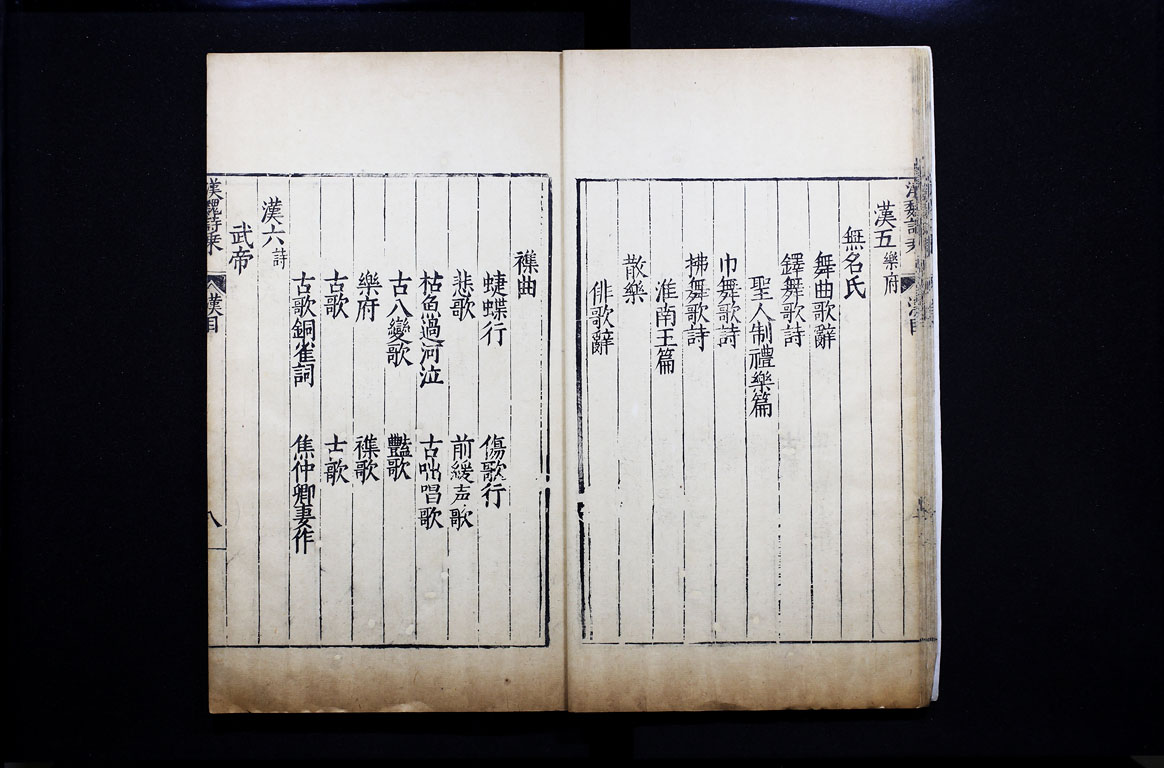 漢五樂府
無名氏
舞曲歌辭
鐸舞歌詩
聖人制禮樂篇
巾舞歌詩
拂舞歌詩
淮南王篇
散樂
俳歌辭
襍曲
蜨蝶行 傷歌行
悲歌 前緩声歌
枯魚過河泣 古咄唱歌
古八變歌 豔歌
樂府 襍歌
古歌 古歌
古歌銅雀詞 焦仲卿妻作
漢六詩
武帝
漢魏詩乘 漢目 八